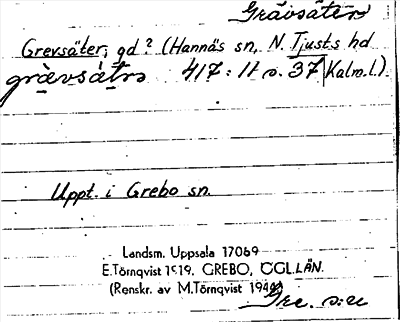 Grävsäter
Grevsäter, gd? (Hannäs sn, N. Tjusts hd
grävsätrs 417: 11 s. 37 Kalm.l.).
Uppt. i Grebo sn.
Landsm. Uppsala 17069
E.Törnqvist 1919. GREBO, ÖGL.LÄN.
(Renskr. av M.Törnqvist 1944)